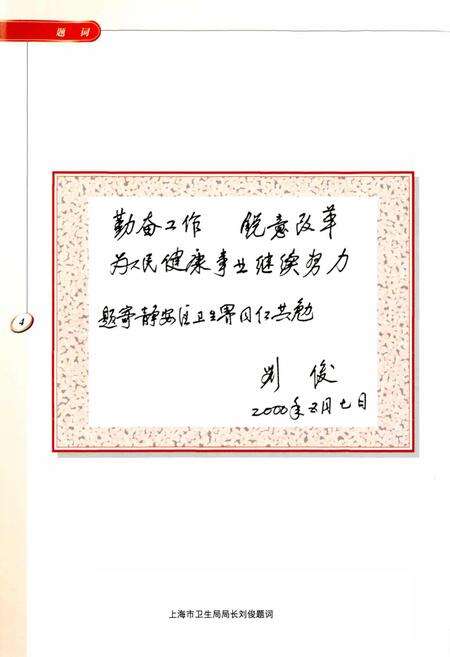 题 词
勤奋工作 锐意改革
为人民健康事业继续努力
题寄静安区卫生界同仁共勉
刘 俊
2000年五月七日
4
上海市卫生局局长刘俊题词